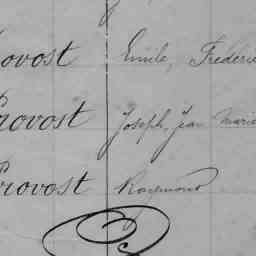 rovost Emile, Frédéric
Provost Joseph, Jean Marie
Provost Raymond